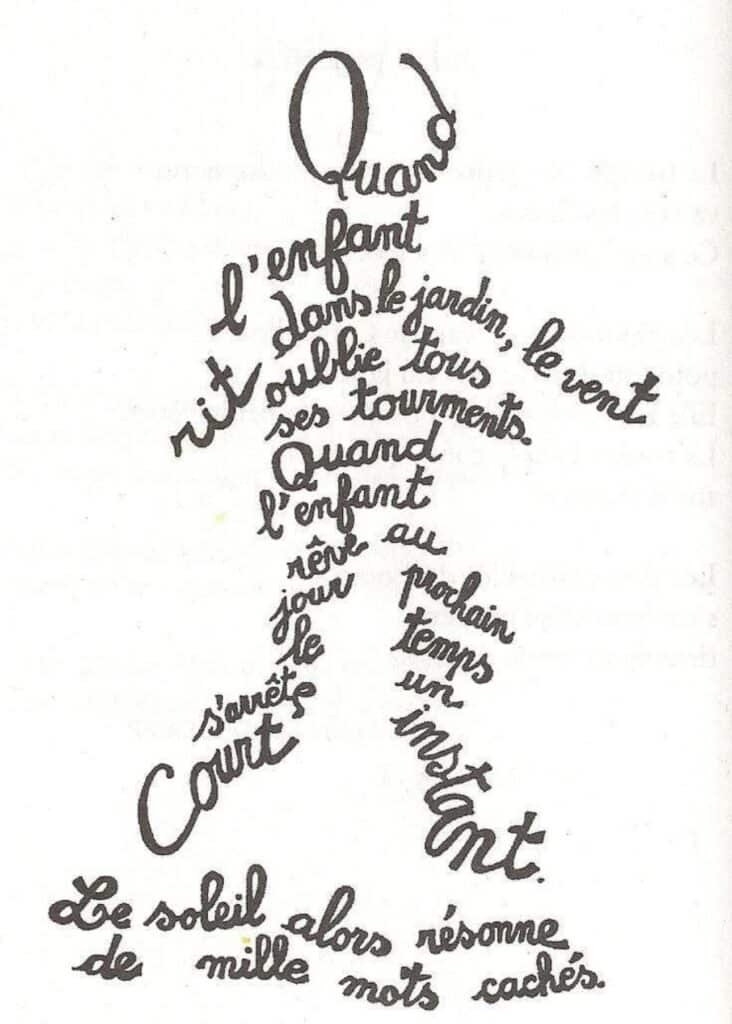 Quand
l'enfant
rit dans le jardin, le vent
oublie tous
ses tourments.
Quand
l'enfant
rêve au
jour prochain
le temps
s'arrête un
Court instant.
Le soleil alors résonne
de mille mots cachés.